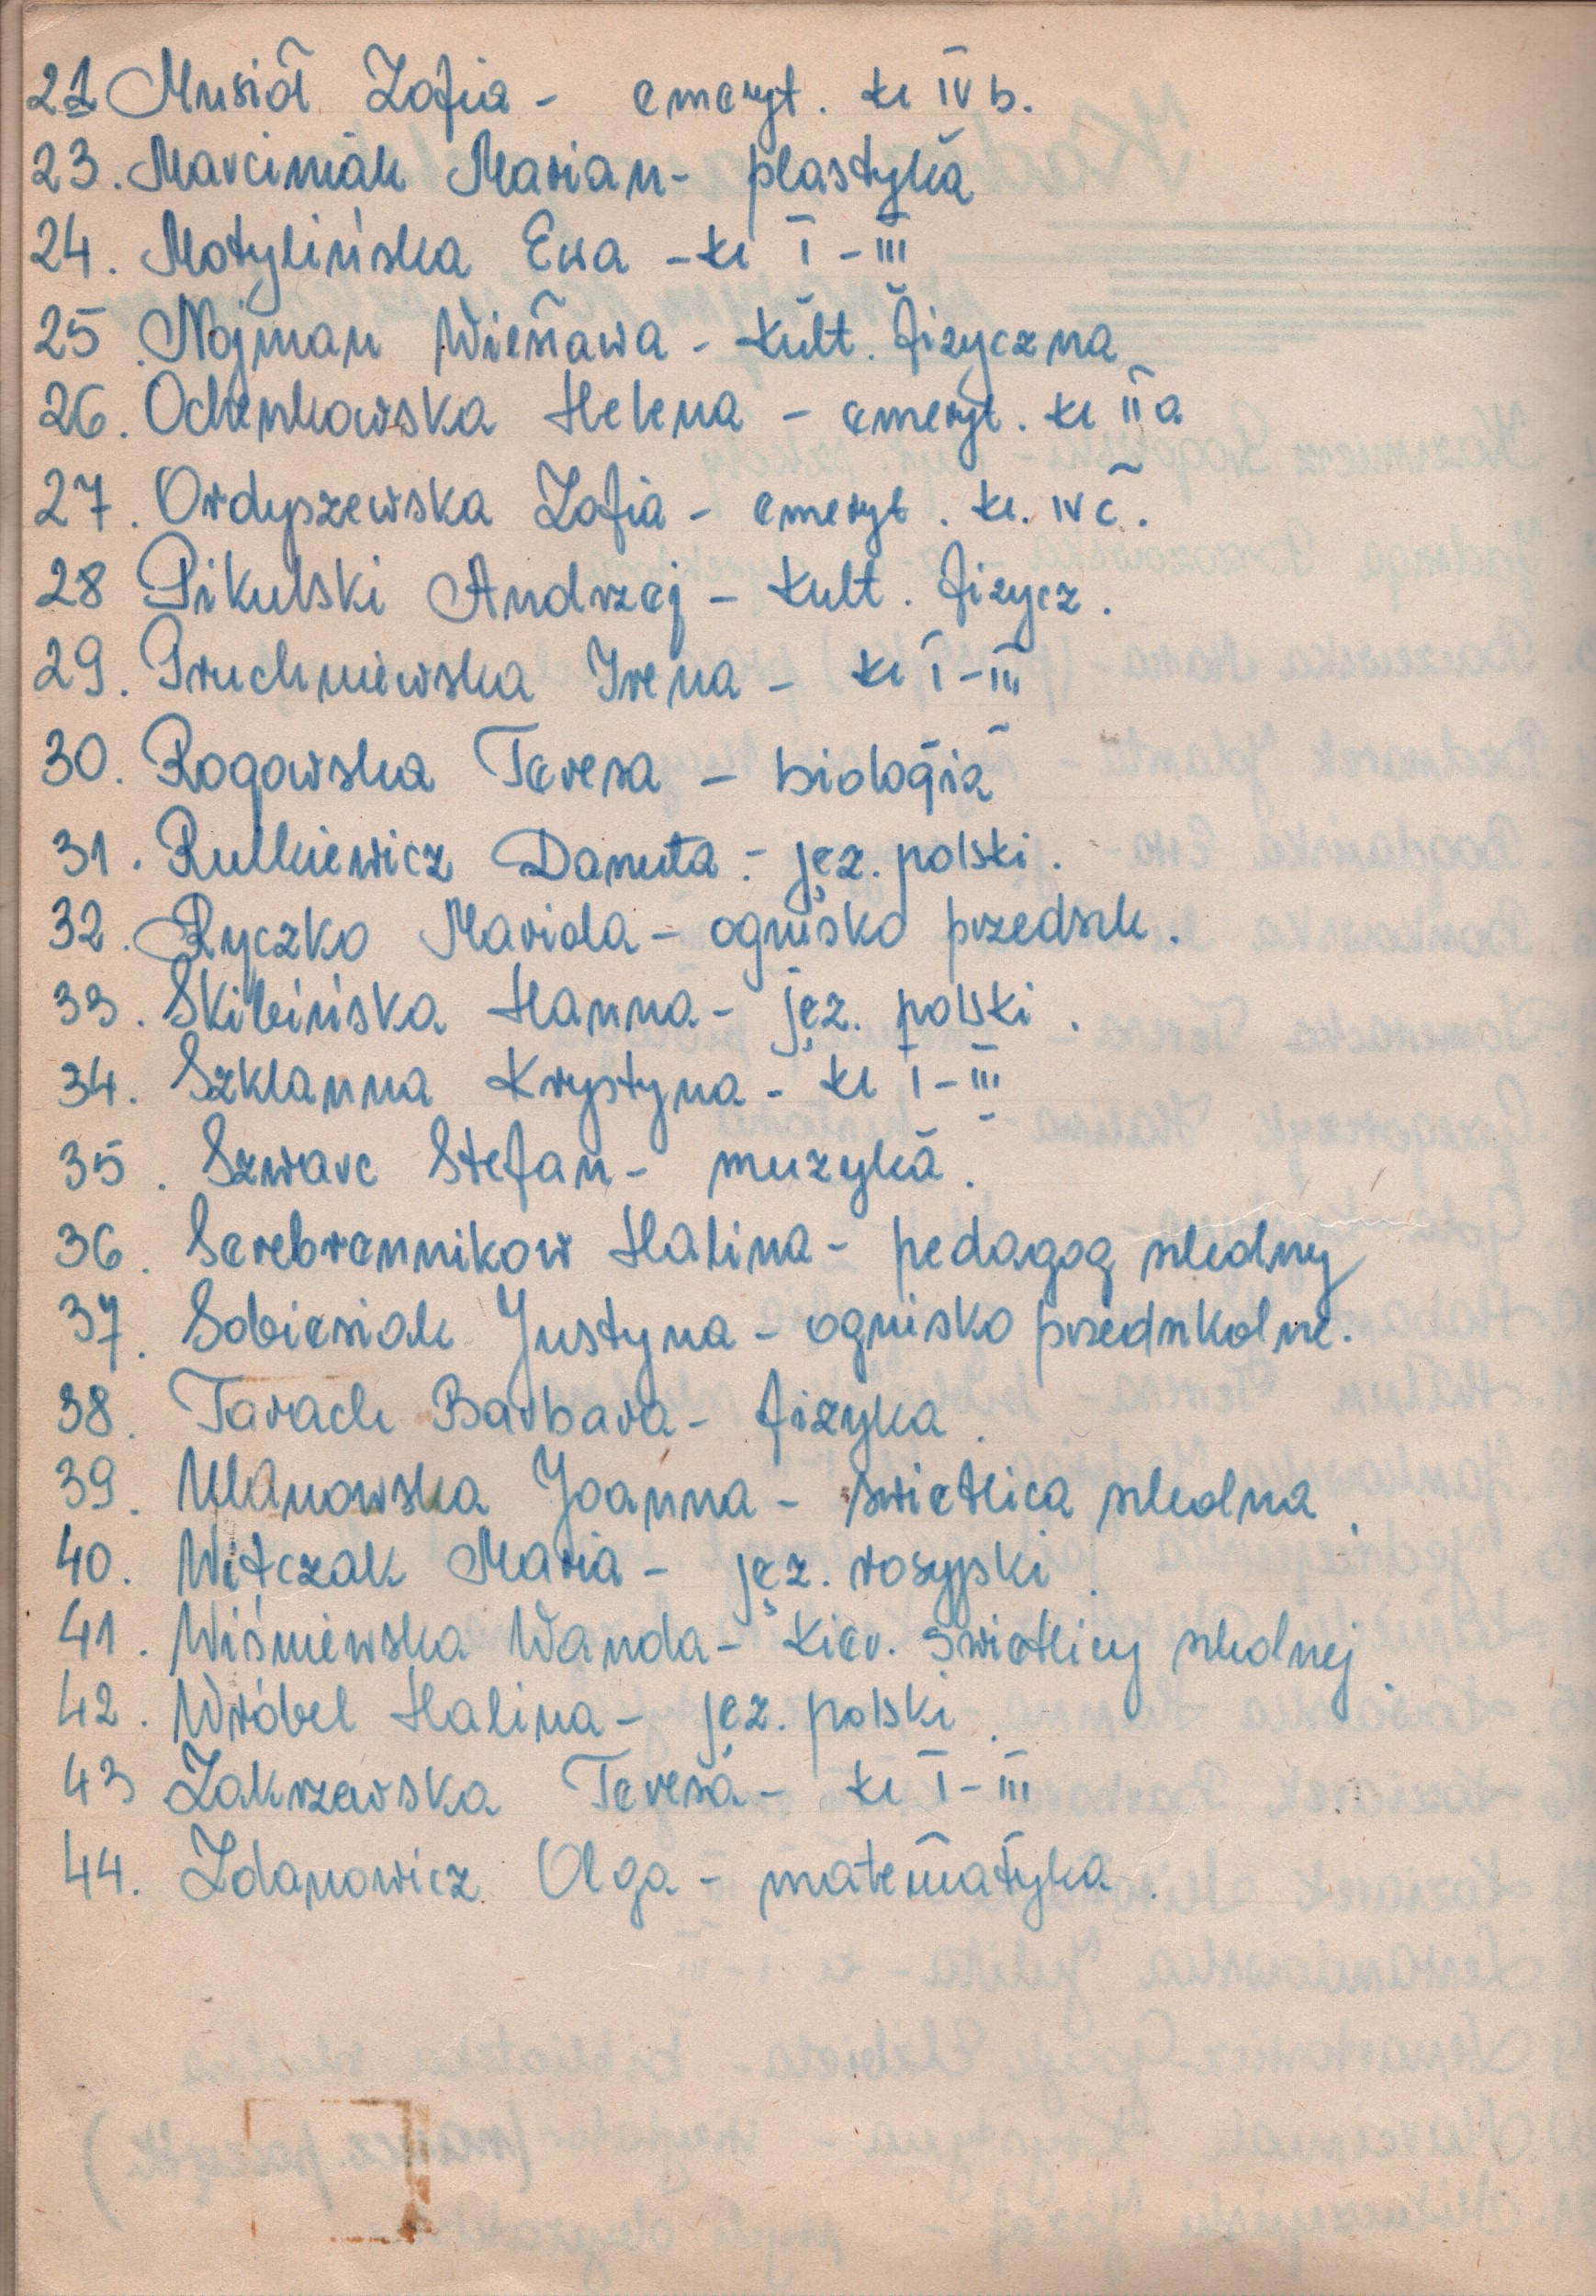 21 Musiał Zofia - emeryt. kl IV b.
23. Marciniak Marian - plastyka
24. Motylińska Ewa - kl I - III
25. Nojman Wiesława - kult. fizyczna
26. Ochenkowska Helena - emeryt. kl II a
27. Ordyszewska Zofia - emeryt. kl. IV c.
28 Pikulski Andrzej - kult. fizycz.
29. Pruchniewska Irena - kl I - III
30. Rogowska Teresa - biologia
31. Rutkiewicz Danuta - jęz. polski.
32. Ryczko Mariola - ognisko przedszk.
33. Skibińska Hanna - jęz. polski.
34. Szklanna Krystyna - kl I - III
35. Szwarc Stefan - muzyka.
36. Serebrennikow Halina - pedagog szkolny
37. Sobiesiak Justyna - ognisko przedszkolne.
38. Tarach Barbara - fizyka.
39. Ulanowska Joanna - świetlica szkolna.
40. Witczak Maria - jęz. rosyjski.
41. Wiśniewska Wanda - kier. świetlicy szkolnej.
42. Wróbel Halina - jęz. polski.
43 Zakrzewska Teresa - kl I - III
44. Zdanowicz Olga - matematyka.